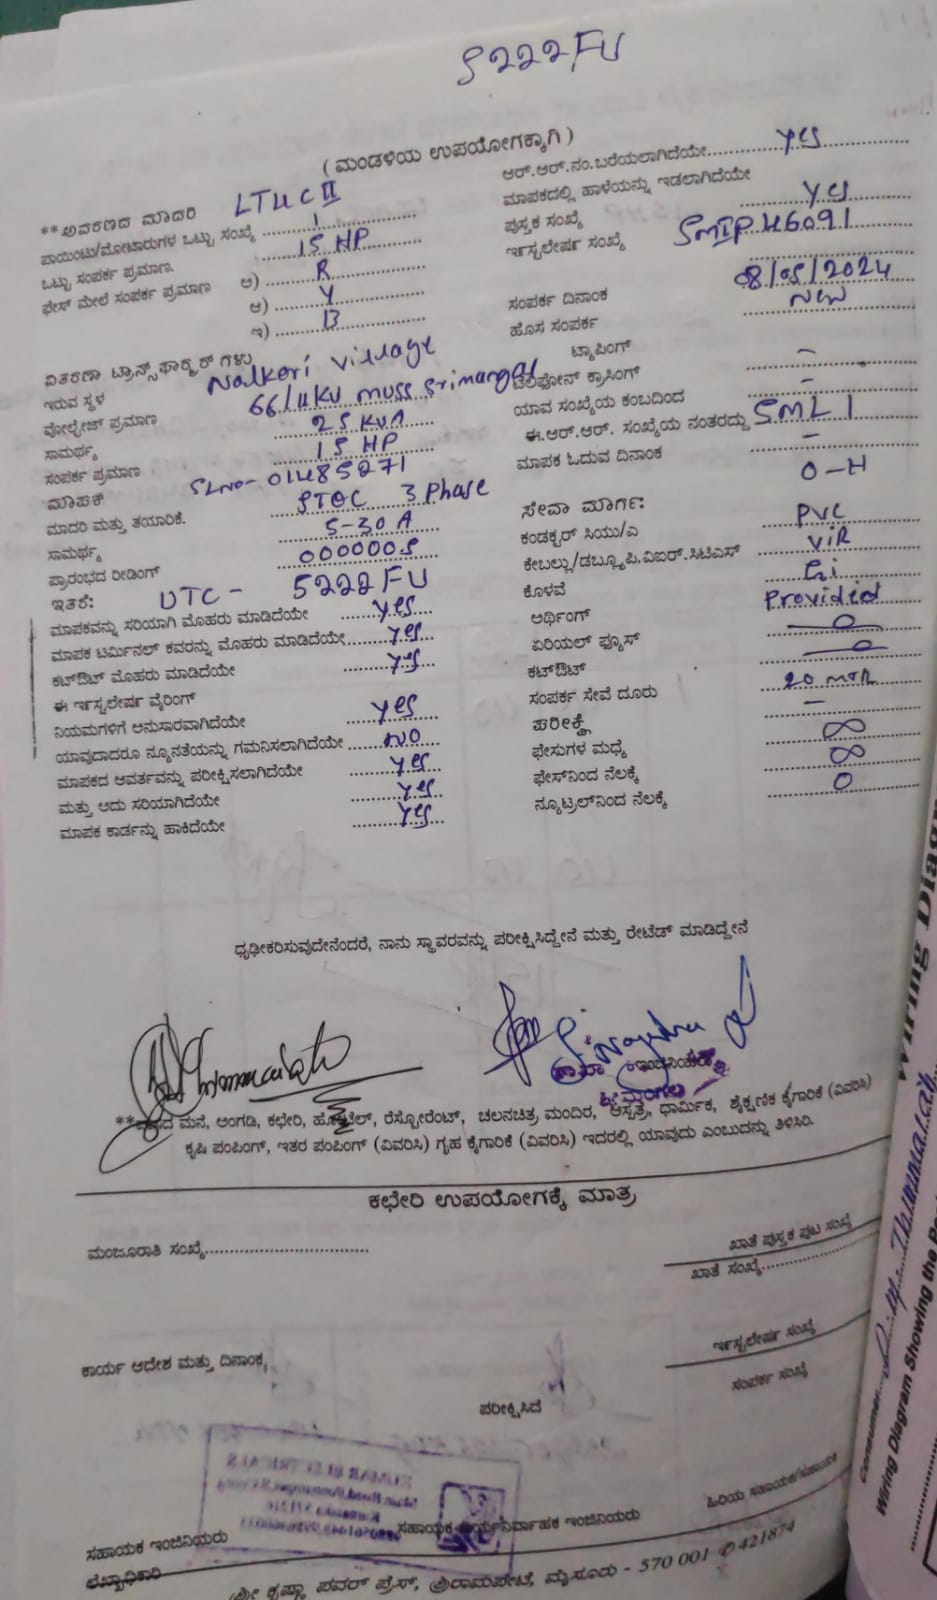 5222FU
( ಮಂಡಳಿಯ ಉಪಯೋಗಕ್ಕಾಗಿ )
**ಆವರಣದ ಮಾದರಿ LTUC II
ಪಾಯಿಂಟು/ಮೋಟಾರುಗಳ ಒಟ್ಟು ಸಂಖ್ಯೆ 1
ಒಟ್ಟು ಸಂಪರ್ಕ ಪ್ರಮಾಣ. 15 HP
ಫೇಸ್ ಮೇಲೆ ಸಂಪರ್ಕ ಪ್ರಮಾಣ ಅ) R
ಆ) Y
ಇ) B
ವಿತರಣಾ ಟ್ರಾನ್ಸ್‌ಫಾರ್ಮರ್ ಗಳು
ಇರುವ ಸ್ಥಳ Nalkeri village
ವೋಲ್ಟೇಜ್ ಪ್ರಮಾಣ 66/11KV muss srimangal
ಸಾಮರ್ಥ್ಯ 25 KVA
ಸಂಪರ್ಕ ಪ್ರಮಾಣ 15 HP
ಮಾಪಕ SLNO- 01485271
ಮಾದರಿ ಮತ್ತು ತಯಾರಿಕೆ. 3 Phase
ಸಾಮರ್ಥ್ಯ 5-30 A
ಪ್ರಾರಂಭದ ರೀಡಿಂಗ್ 0000005
ಇತರೆ: UTC - 5222FU
ಮಾಪಕವನ್ನು ಸರಿಯಾಗಿ ಮೊಹರು ಮಾಡಿದೆಯೇ yes
ಮಾಪಕ ಟರ್ಮಿನಲ್ ಕವರನ್ನು ಮೊಹರು ಮಾಡಿದೆಯೇ yes
ಕಟ್‌ಔಟ್ ಮೊಹರು ಮಾಡಿದೆಯೇ yes
ಈ ಇನ್‌ಸ್ಟಲೇಷನ್ ವೈರಿಂಗ್
ನಿಯಮಗಳಿಗೆ ಅನುಸಾರವಾಗಿದೆಯೇ yes
ಯಾವುದಾದರೂ ನ್ಯೂನತೆಯನ್ನು ಗಮನಿಸಲಾಗಿದೆಯೇ NO
ಮಾಪಕದ ಆವರ್ತವನ್ನು ಪರೀಕ್ಷಿಸಲಾಗಿದೆಯೇ yes
ಮತ್ತು ಅದು ಸರಿಯಾಗಿದೆಯೇ yes
ಮಾಪಕ ಕಾರ್ಡನ್ನು ಹಾಕಿದೆಯೇ yes
ಆರ್.ಆರ್.ನಂ.ಬರೆಯಲಾಗಿದೆಯೇ yes
ಮಾಪಕದಲ್ಲಿ ಹಾಳೆಯನ್ನು ಇಡಲಾಗಿದೆಯೇ
ಪುಸ್ತಕ ಸಂಖ್ಯೆ yes
ಇನ್‌ಸ್ಟಲೇಷನ್ ಸಂಖ್ಯೆ SMIP46091
ಸಂಪರ್ಕ ದಿನಾಂಕ 08/05/2024
ಹೊಸ ಸಂಪರ್ಕ New
ಟ್ಯಾಪಿಂಗ್
ಟೆಲಿಫೋನ್ ಕ್ರಾಸಿಂಗ್ -
ಯಾವ ಸಂಖ್ಯೆಯ ಕಂಬದಿಂದ -
ಈ.ಆರ್.ಆರ್. ಸಂಖ್ಯೆಯ ನಂತರದ್ದು SML 1
ಮಾಪಕ ಓದುವ ದಿನಾಂಕ -
ಸೇವಾ ಮಾರ್ಗ: O-H
ಕಂಡಕ್ಟರ್ ಸಿಯು/ಎ PVC
ಕೇಬಲ್ಲು/ಡಬ್ಲ್ಯೂ.ಪಿ.ವಿಐಆರ್.ಸಿಟಿಎಸ್ VIR
ಕೊಳವೆ Gi
ಅರ್ಥಿಂಗ್ Provided
ಏರಿಯಲ್ ಫ್ಯೂಸ್
ಕಟ್‌ಔಟ್
ಸಂಪರ್ಕ ಸೇವೆ ದೂರು 20 mtr
ಪರೀಕ್ಷೆ -
ಫೇಸುಗಳ ಮಧ್ಯೆ ∞
ಫೇಸ್‌ನಿಂದ ನೆಲಕ್ಕೆ ∞
ನ್ಯೂಟ್ರಲ್‌ನಿಂದ ನೆಲಕ್ಕೆ 0
ಧೃಢೀಕರಿಸುವುದೇನೆಂದರೆ, ನಾನು ಸ್ಥಾವರವನ್ನು ಪರೀಕ್ಷಿಸಿದ್ದೇನೆ ಮತ್ತು ರೇಟೆಡ್ ಮಾಡಿದ್ದೇನೆ
ಶ್ರೀಮಂಗಲ
ಮನೆ, ಅಂಗಡಿ, ಕಛೇರಿ, ಹೋಟೆಲ್, ರೆಸ್ಟೋರೆಂಟ್, ಚಲನಚಿತ್ರ ಮಂದಿರ, ಆಸ್ಪತ್ರೆ, ಧಾರ್ಮಿಕ, ಶೈಕ್ಷಣಿಕ ಕೈಗಾರಿಕೆ (ವಿವರಿಸಿ)
ಕೃಷಿ ಪಂಪಿಂಗ್, ಇತರ ಪಂಪಿಂಗ್ (ವಿವರಿಸಿ) ಗೃಹ ಕೈಗಾರಿಕೆ (ವಿವರಿಸಿ) ಇದರಲ್ಲಿ ಯಾವುದು ಎಂಬುದನ್ನು ತಿಳಿಸಿರಿ.
ಕಛೇರಿ ಉಪಯೋಗಕ್ಕೆ ಮಾತ್ರ
ಮಂಜೂರಾತಿ ಸಂಖ್ಯೆ
ಖಾತೆ ಪುಸ್ತಕ ಪುಟ ಸಂಖ್ಯೆ
ಖಾತೆ ಸಂಖ್ಯೆ
ಕಾರ್ಯ ಆದೇಶ ಮತ್ತು ದಿನಾಂಕ
ಇನ್‌ಸ್ಟಲೇಷನ್ ಸಂಖ್ಯೆ
ಸಂಪರ್ಕ ಸಂಖ್ಯೆ
ಪರೀಕ್ಷಿಸಿದೆ
ಸಹಾಯಕ ಇಂಜಿನಿಯರು
ಸಹಾಯಕ ಕಾರ್ಯನಿರ್ವಾಹಕ ಇಂಜಿನಿಯರು
ಹಿರಿಯ ಸಹಾಯಕ/ಸಹಾಯಕ
ಲೆಖ್ಖಾಧಿಕಾರಿ
ಶ್ರೀ ಕೃಷ್ಣಾ ಪವರ್ ಪ್ರೆಸ್, ಶ್ರೀರಾಮಪೇಟೆ, ಮೈಸೂರು - 570 001 ✆ 421874
Wiring Diagram
Consumer
Wiring Diagram Showing the